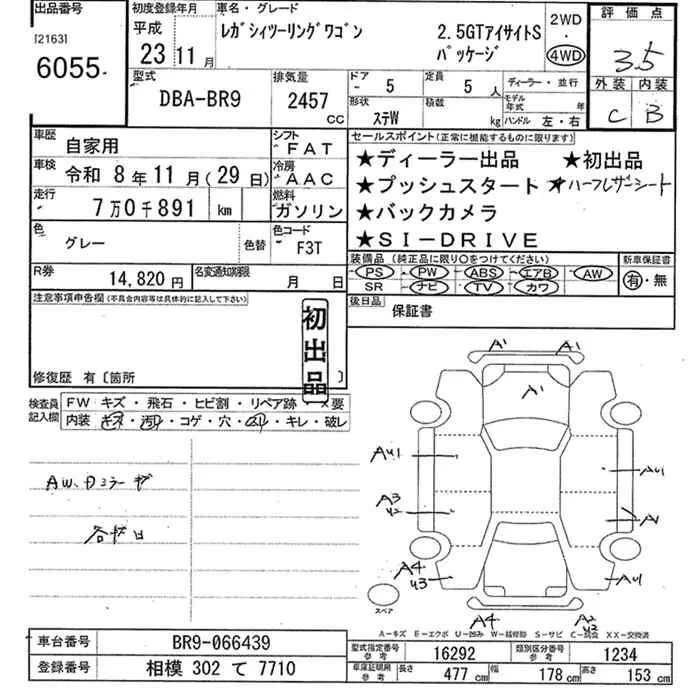 出品番号 初度登録年月 車名・グレード 2WD 評価点
[2163] 平成 レガシィツーリングワゴン 2.5GTアイサイトS ・ 3.5
6055 23年11月 パッケージ 4WD 外装 内装
型式 排気量 ドア 定員 ディーラー・並行 C B
DBA-BR9 2457 cc - 5 5 人 モデル年式 年
形状 ステW 積載 kg ハンドル 左・右
車歴 自家用 シフト FAT セールスポイント(正常に機能するものに限ります)
車検 令和 8年11月(29日) 冷房 AAC ★ディーラー出品 ★初出品
走行 7万0千891 km 燃料 ガソリン ★プッシュスタート ★ハーフレザーシート
★バックカメラ
色 グレー 色替 色コード F3T ★SI-DRIVE
R券 14,820円 名変通知期限 月 日 装備品(純正品に限り○をつけてください) 新車保証書
PS PW ABS エアB AW 有・無
SR ナビ TV カワ
注意事項申告欄(不具合内容等は具体的に記入して下さい) 後日品 保証書
初出品
修復歴 有〔箇所 〕
検査員記入欄 FW キズ・飛石・ヒビ割・リペア跡・×要
内装 キズ・汚れ・コゲ・穴・・キレ・破レ
A1 A1
A1
AU1 AU1
A3
U2 A1
A4
U3 AU1
A4 A2
U2
AW、Dミラーキズ
スペア
A-キズ E-エクボ U-凹み W-補修跡 S-サビ C-腐食 XX-交換済
車台番号 BR9-066439 型式指定番号 参考 16292 類別区分番号 参考 1234
登録番号 相模 302 て 7710 車庫証明用 参考 長さ 477 cm 幅 178 cm 高さ 153 cm